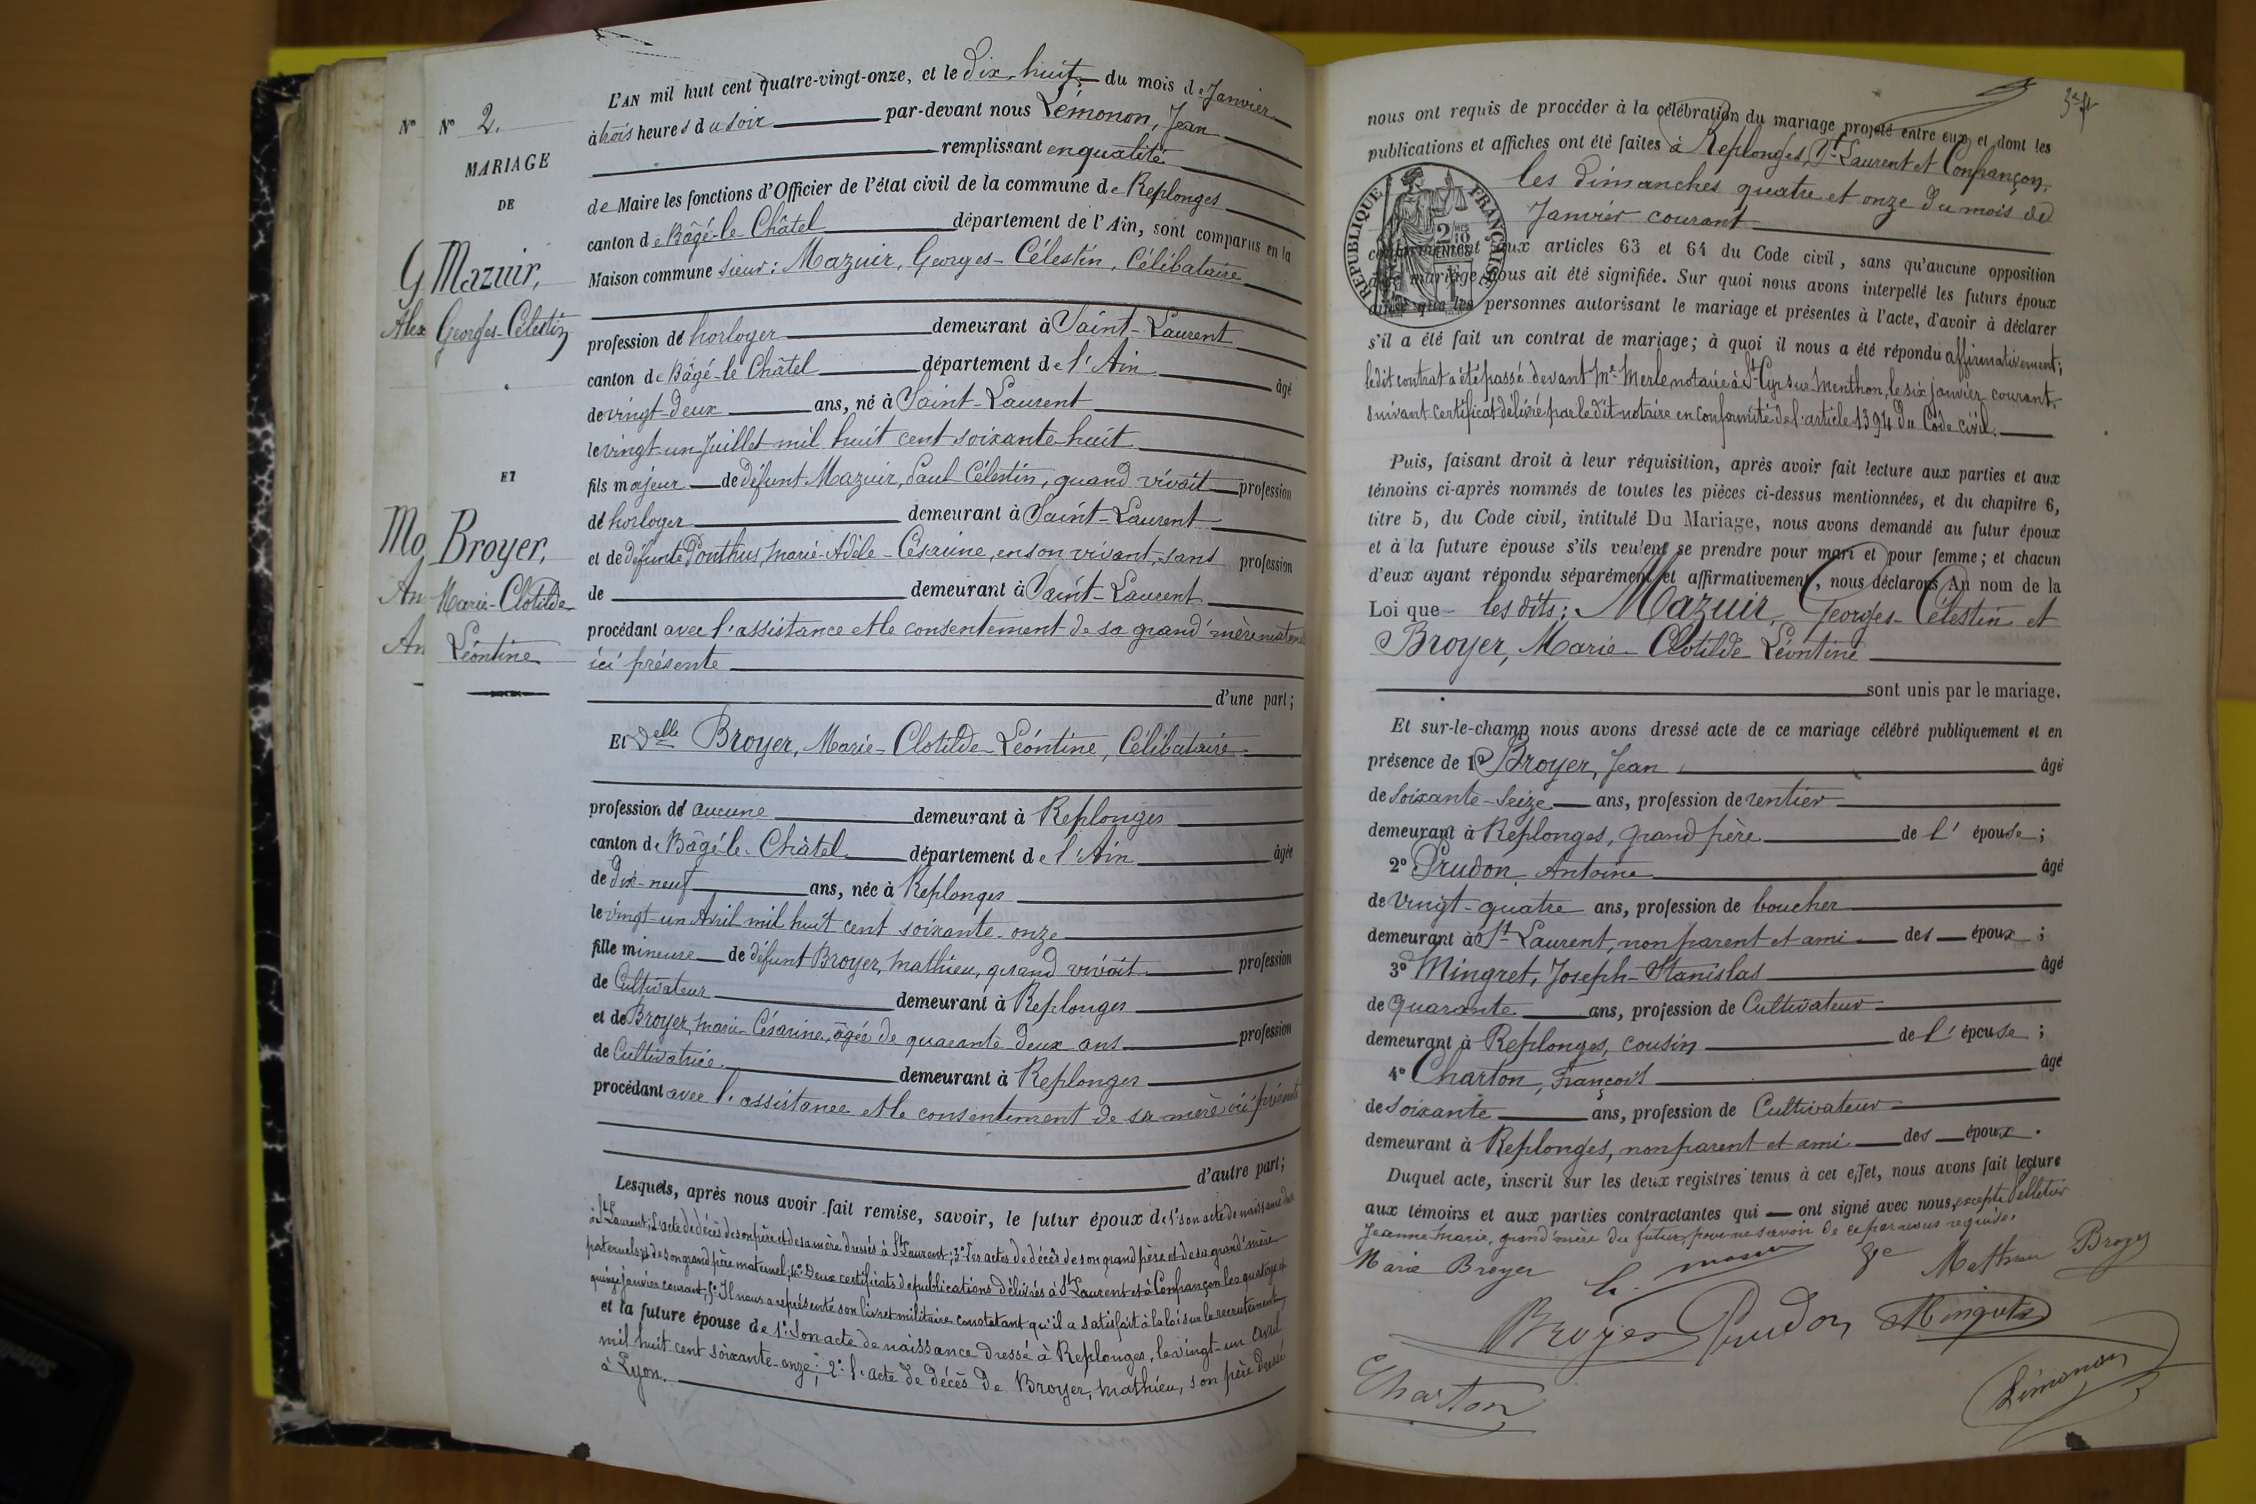 N° N° 2.
MARIAGE
DE
G Mazuir,
Alex Georges-Célestin
ET
Mo, Broyer,
An Marie-Clotilde
An Léontine
L'AN mil huit cent quatre-vingt-onze, et le dix-huit du mois de Janvier
à trois heures du soir par-devant nous Lémonon, Jean
remplissant en qualité
de Maire les fonctions d'Officier de l'état civil de la commune de Replonges
canton de Bâgé-le Châtel département de l'Ain, sont comparus en la
Maison commune sieur: Mazuir, Georges-Célestin, Célibataire
profession de horloger demeurant à Saint-Laurent
canton de Bâgé-le Châtel département de l'Ain âgé
de vingt-deux ans, né à Saint-Laurent
le vingt-un Juillet mil huit cent soixante-huit
fils majeur de défunt Mazuir, Paul Célestin, quand vivait profession
de horloger demeurant à Saint-Laurent
et de défunte Ponthus, Marie-Adèle-Césarine, en son vivant, sans profession
de demeurant à Saint-Laurent
procédant avec l'assistance et le consentement de sa grand'mère maternelle
ici présente
d'une part;
Et Delle Broyer, Marie-Clotilde-Léontine, Célibataire
profession de aucune demeurant à Replonges
canton de Bâgé-le-Châtel département de l'Ain âgée
de dix-neuf ans, née à Replonges
le vingt-un Avril mil huit cent soixante-onze
fille mineure de défunt Broyer, Mathieu, quand vivait profession
de Cultivateur demeurant à Replonges
et de Broyer, Marie-Césarine, âgée de quarante deux ans profession
de Cultivatrice demeurant à Replonges
procédant avec l'assistance et le consentement de sa mère ici présente
d'autre part;
Lesquels, après nous avoir fait remise, savoir, le futur époux de 1° son acte de naissance dressé
à St Laurent; L'acte de décès de son père et de sa mère dressés à St Laurent; 3° Les actes de décès de son grand père et de sa grand'mère
paternels et de son grand père maternel; 4° Deux certificats de publications délivrés à St Laurent et à Confrançon les quatorze et
quinze janvier courant; 5° Il nous a représenté son livret militaire constatant qu'il a satisfait à la loi sur le recrutement
et la future épouse de 1° Son acte de naissance dressé à Replonges, le vingt-un avril
mil huit cent soixante-onze; 2° L'acte de décès de Broyer, Mathieu, son père dressé
à Lyon.
nous ont requis de procéder à la célébration du mariage projeté entre eux, et dont les
publications et affiches ont été faites à Replonges, St Laurent et Confrançon,
les dimanches quatre et onze du mois de
Janvier courant
REPUBLIQUE FRANÇAISE
conformément aux articles 63 et 64 du Code civil, sans qu'aucune opposition
audit mariage nous ait été signifiée. Sur quoi nous avons interpellé les futurs époux
ainsi que les personnes autorisant le mariage et présentes à l'acte, d'avoir à déclarer
s'il a été fait un contrat de mariage; à quoi il nous a été répondu affirmativement;
ledit contrat a été passé devant Me Merle notaire à St Cyr sur Menthon, le six janvier courant,
suivant certificat délivré par le dit notaire en conformité de l'article 1394 du Code civil.
Puis, faisant droit à leur réquisition, après avoir fait lecture aux parties et aux
témoins ci-après nommés de toutes les pièces ci-dessus mentionnées, et du chapitre 6,
titre 5, du Code civil, intitulé Du Mariage, nous avons demandé au futur époux
et à la future épouse s'ils veulent se prendre pour mari et pour femme; et chacun
d'eux ayant répondu séparément et affirmativement, nous déclarons Au nom de la
Loi que les dits: Mazuir, Georges-Célestin et
Broyer, Marie-Clotilde Léontine
sont unis par le mariage.
Et sur-le-champ nous avons dressé acte de ce mariage célébré publiquement et en
présence de 1° Broyer, Jean âgé
de soixante-seize ans, profession de rentier
demeurant à Replonges, grand père de l'épouse;
2° Prudon Antoine âgé
de vingt-quatre ans, profession de boucher
demeurant à St Laurent, non parent et ami des époux;
3° Mingret, Joseph-Stanislas âgé
de quarante ans, profession de Cultivateur
demeurant à Replonges, cousin de l'épouse;
4° Charton, François âgé
de soixante ans, profession de Cultivateur
demeurant à Replonges, non parent et ami des époux.
Duquel acte, inscrit sur les deux registres tenus à cet effet, nous avons fait lecture
aux témoins et aux parties contractantes qui ont signé avec nous, excepté Pelletier
Jeanne Marie, grand'mère du futur, pour ne savoir de ce par nous requise.
Marie Broyer Broyer
Broyer Prudon Mingret
Charton Lémonon